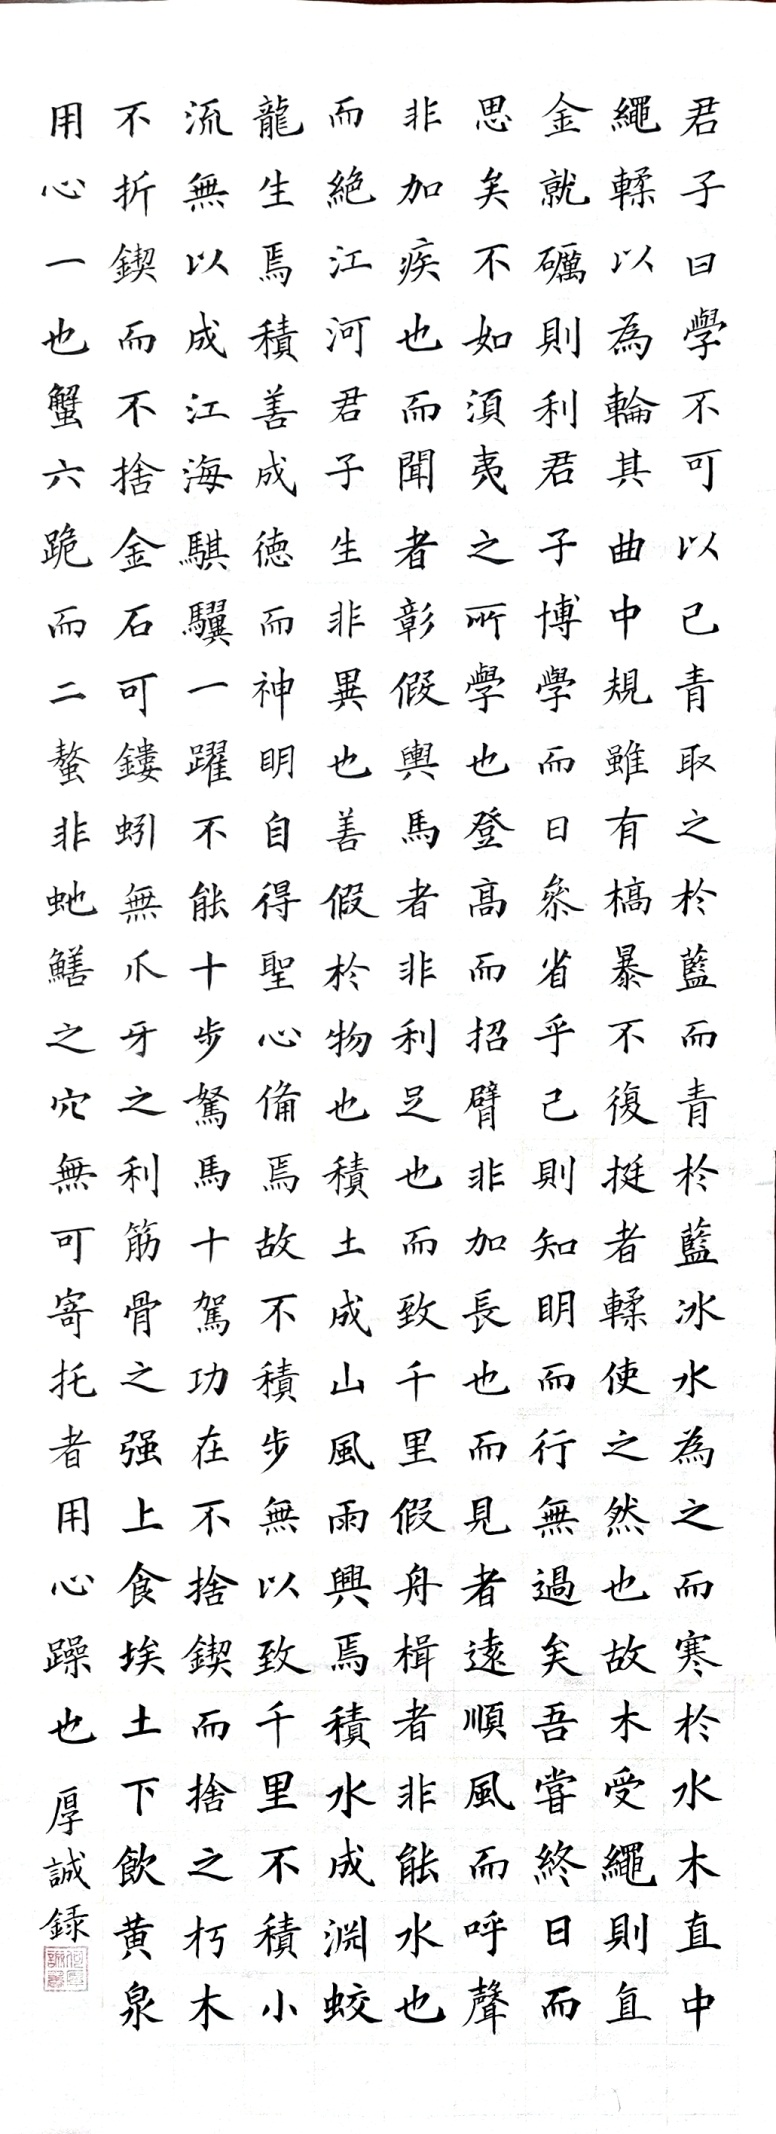 君子曰學不可以已青取之於藍而青於藍冰水為之而寒於水木直中
繩輮以為輪其曲中規雖有槁暴不復挺者輮使之然也故木受繩則直
金就礪則利君子博學而日參省乎己則知明而行無過矣吾嘗終日而
思矣不如須臾之所學也登高而招臂非加長也而見者遠順風而呼聲
非加疾也而聞者彰假輿馬者非利足也而致千里假舟楫者非能水也
而絕江河君子生非異也善假於物也積土成山風雨興焉積水成淵蛟
龍生焉積善成德而神明自得聖心備焉故不積步無以致千里不積小
流無以成江海騏驥一躍不能十步駑馬十駕功在不捨鍥而捨之朽木
不折鍥而不捨金石可鏤蚓無爪牙之利筋骨之强上食埃土下飲黄泉
用心一也蟹六跪而二螯非虵鱔之穴無可寄托者用心躁也 厚誠録